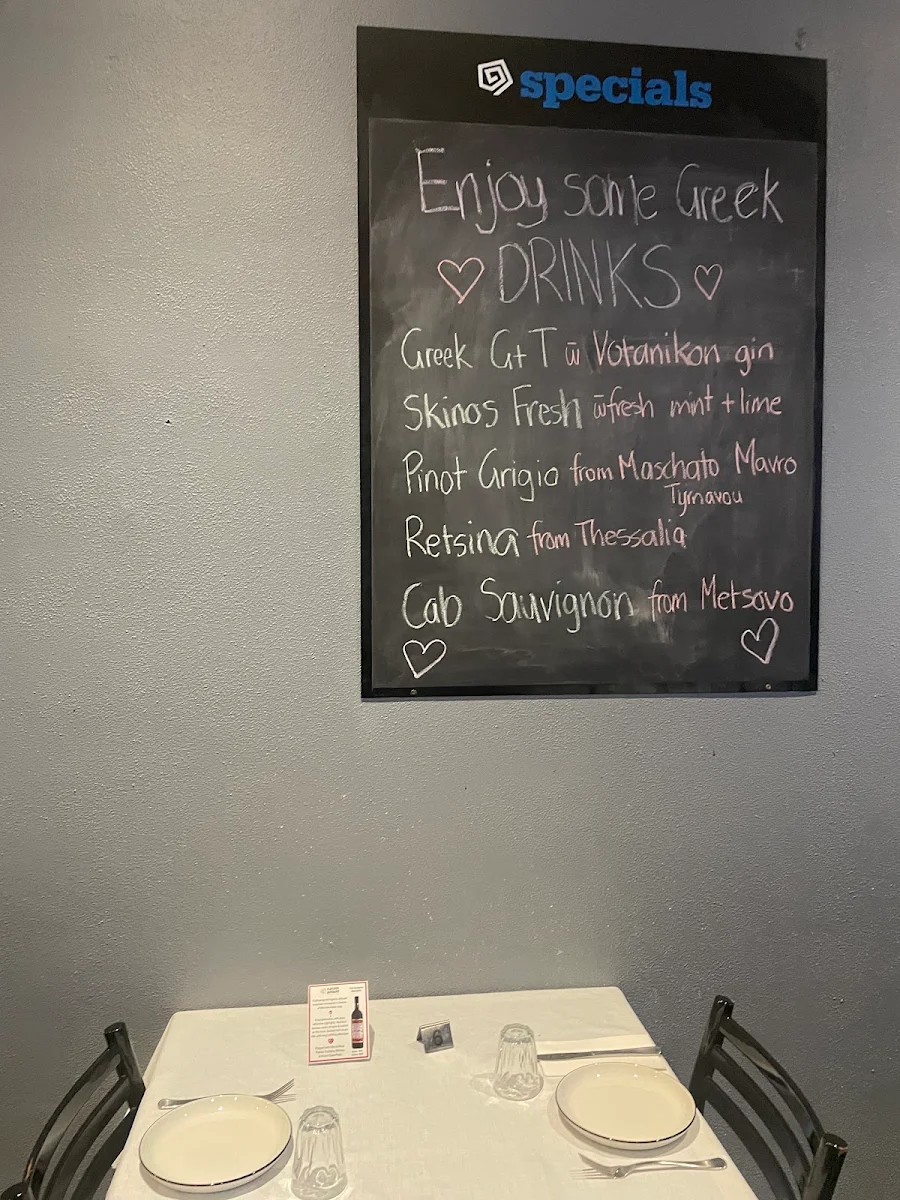 specials
Enjoy some Greek
DRINKS
Greek G+T w̄ Votanikon gin
Skinos Fresh w̄ fresh mint + lime
Pinot Grigio from Maschato Mavro
Tyrnavou
Retsina from Thessalia
Cab Sauvignon from Metsovo
6